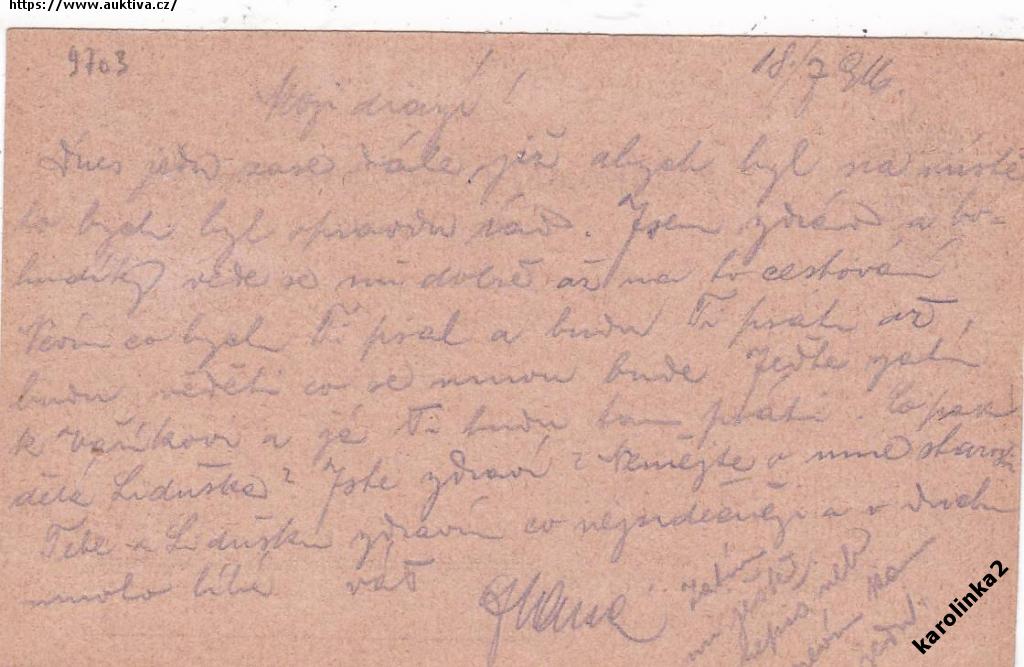 https://www.auktiva.cz/
9703
18./7 916.
Moji drazí!
Dnes jedu zase dále již abych byl na místě
to bych byl opravdu rád. Jsem zdráv a bo-
hudíky vede se mi dobře až na to cestování
Nevím co bych Ti psal a budu Ti psáti až,
budu věděti co se mnou bude Jeďte zatím
k Vaříkovi a já Ti budu tam psáti Copak
dělá Liduška? Jste zdraví? Nemějte o mne starosti
Tebe a Lidušku zdravím co nejsrdečněji a v duchu
mnoho líbá váš
Zatím
mi ještě
nepiš neb
nevím kam
jedu.
karolinka2